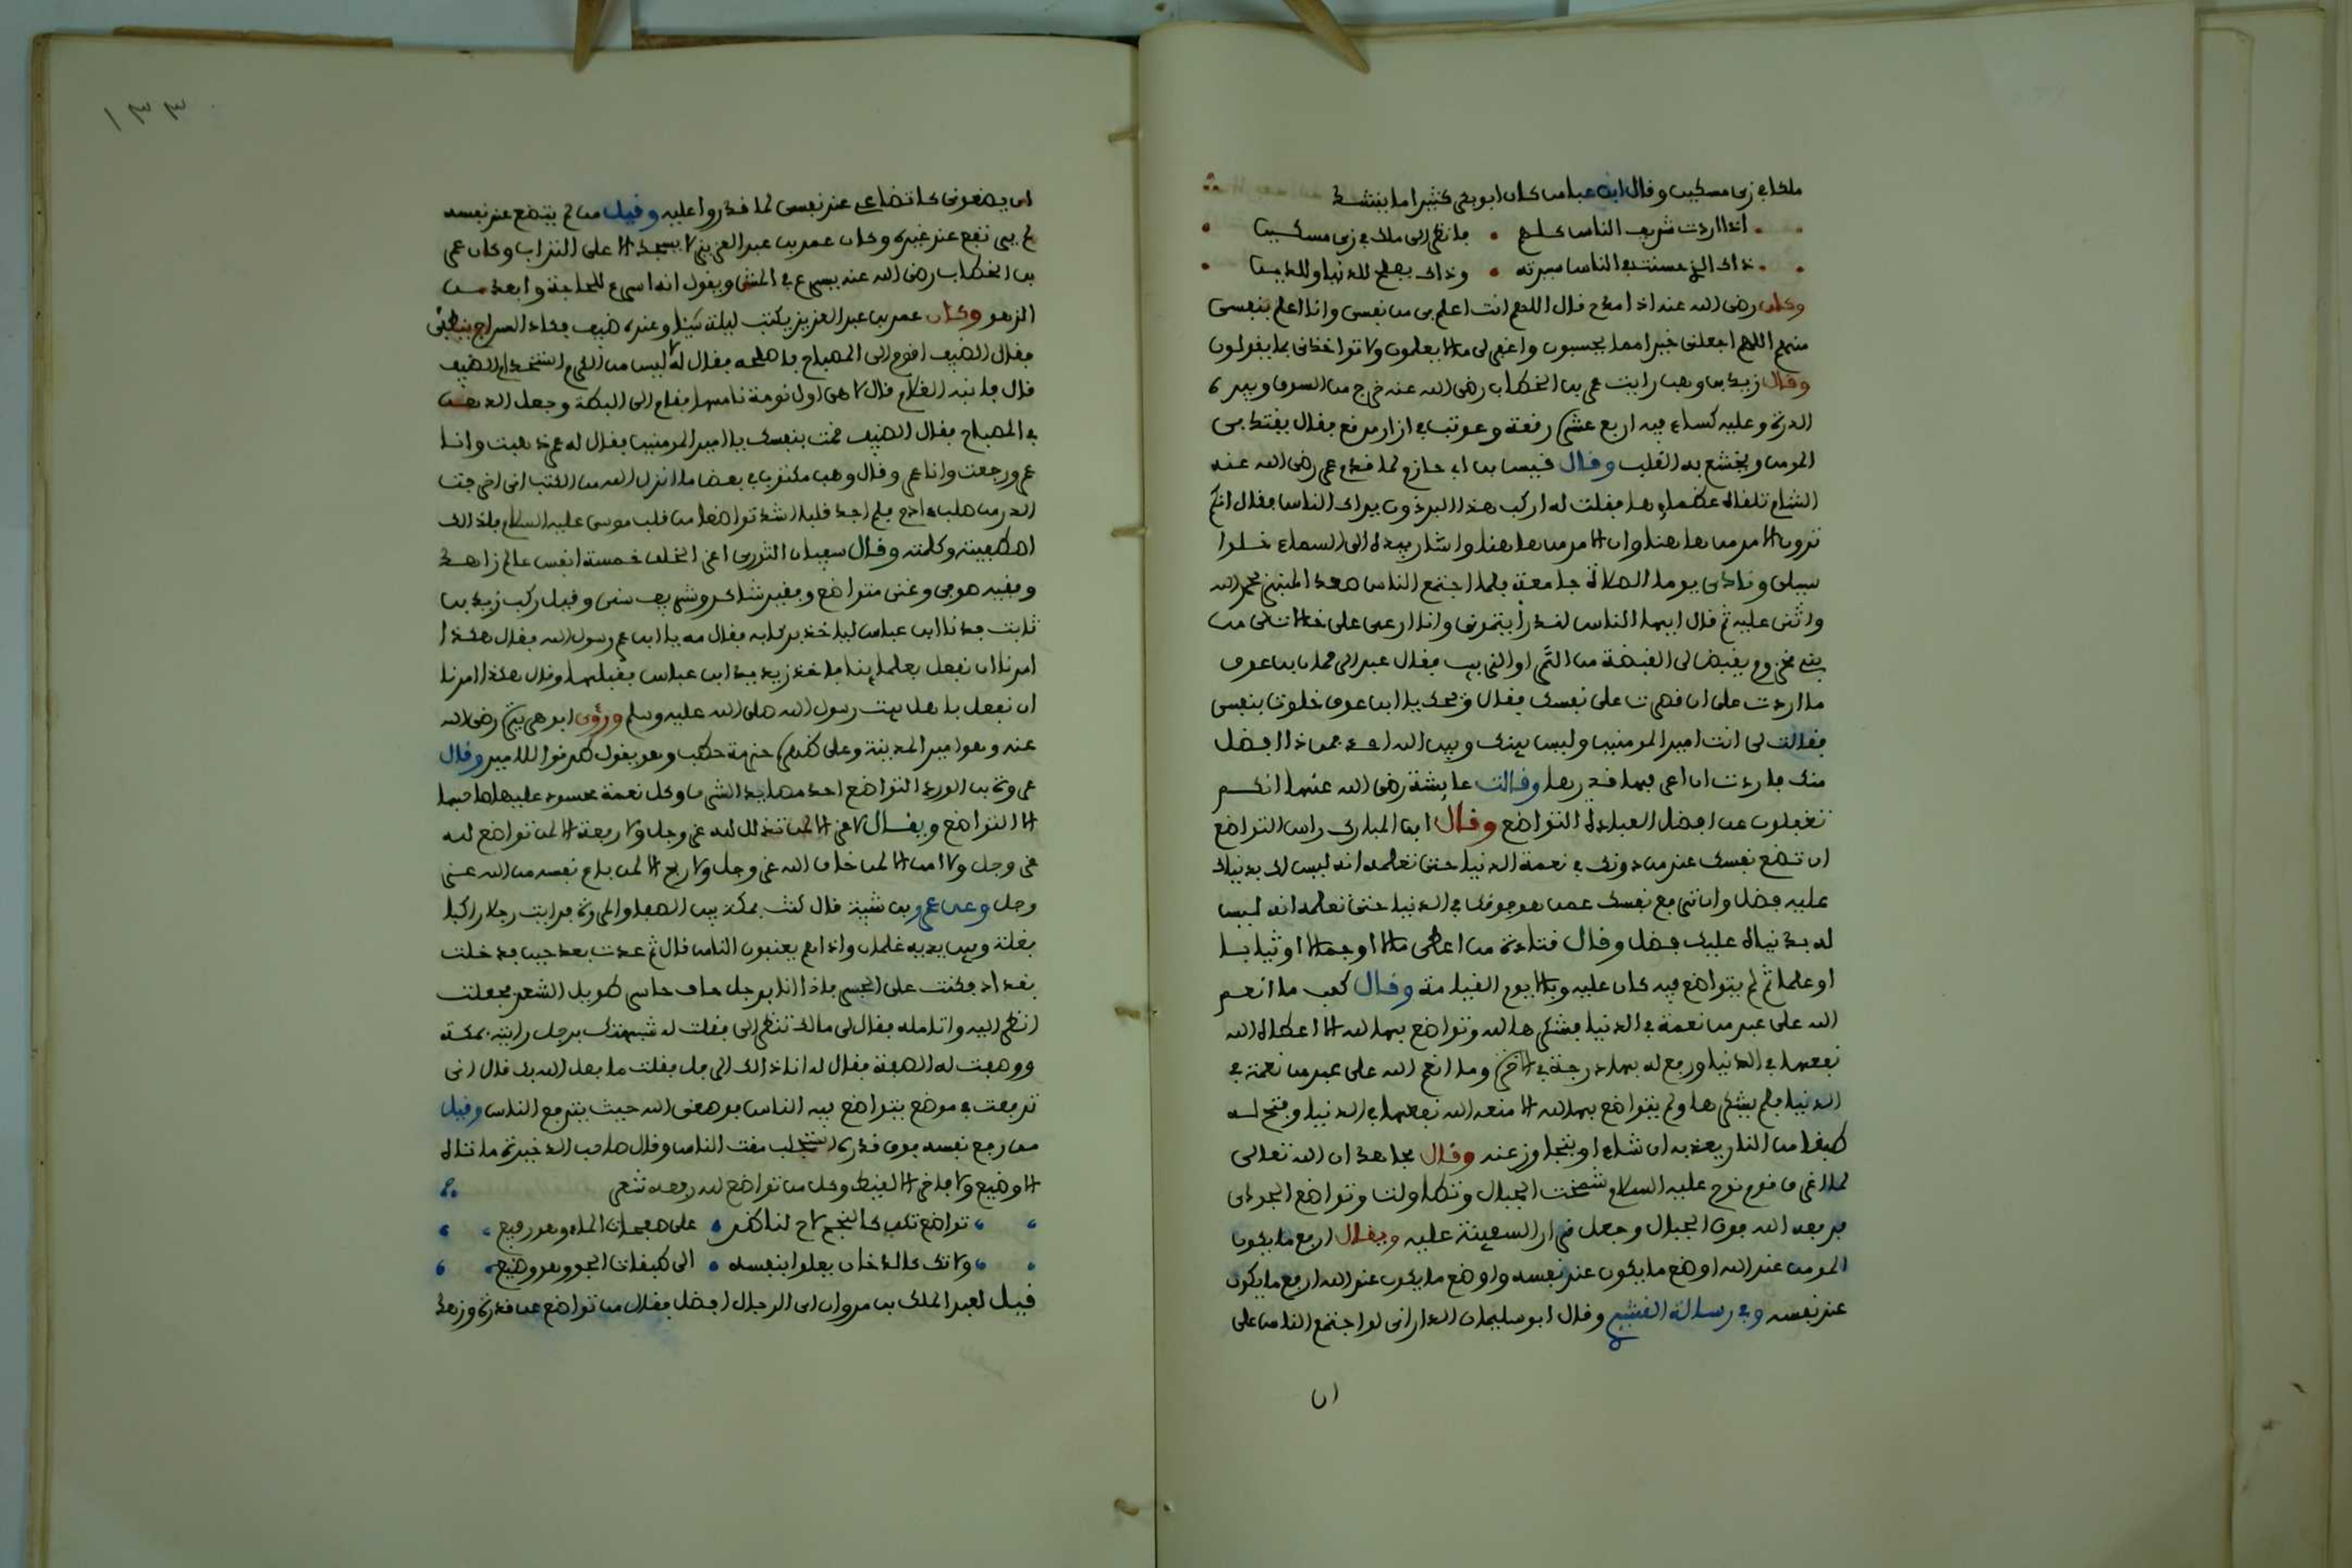 ملكا في زي مسكين وقال ابن عباس كان ابو بكر كثيرا ما ينشد
اذا اردت شريف الناس كلهم • فانظر الى ملك في زي مسكين
ذاك الذي حسنت في الناس سيرته • وذاك يصلح للدنيا وللدين
وكان رضي الله عنه اذا مدح قال اللهم انت اعلم بي من نفسي وانا اعلم بنفسي
منهم اللهم اجعلني خيرا مما يحسبون واغفر لي ما لا يعلمون ولا تواخذني بما يقولون
وقال زيد بن وهب رايت عمر بن الخطاب رضي الله عنه خرج من السوق وبيده
الدرة وعليه كساء فيه اربع عشرة رقعة وعوتب في ازار مرقع فقال يقتدي بي
المومن ويخشع به القلب وقال قيس بن ابي حازم لما قدم عمر رضي الله عنه
الشام تلقاه عظماوها فقلت له اركب هذا البرذون يراك الناس فقال انكم
ترون الامر من هاهنا وان الامر من هاهنا واشار بيده الى السماء خلوا
سبيلي ونادى يوما الصلاة جامعة فلما اجتمع الناس صعد المنبر فحمد الله
واثنى عليه ثم قال ايها الناس لقد رأيتموني وانا ارعى على خالات لي من
بني مخزوم يقبض لي القبضة من التمر او الزبيب فقال عبد الرحمان بن عوف
ما اردت على ان قصرت على نفسك فقال ويحك يا ابن عوف خلوت بنفسي
فقالت لي انت امير المومنين وليس بينك وبين الله احد فمن ذا افضل
منك فاردت ان اعرفها قدرها وقالت عايشة رضي الله عنها انكم
تغفلون عن افضل العبادة التواضع وقال ابن المبارك راس التواضع
ان تضع نفسك عند من دونك في نعمة الدنيا حتى تعلمه انه ليس لك بدنياك
عليه فضل وان ترفع نفسك عمن هو فوقك في الدنيا حتى تعلمه انه ليس
له بدنياه عليك فضل وقال قتادة من اعطي مالا او جمالا او ثيابا
او علما ثم لم يتواضع فيه كان عليه وبالا يوم القيامة وقال كعب ما انعم
الله على عبد من نعمة في الدنيا فشكرها لله وتواضع بها لله الا اعطاه الله
نفعها في الدنيا ورفع له بها درجة في الاخرة وما انعم الله على عبد من نعمة في
الدنيا فلم يشكرها ولم يتواضع بها لله الا منعه الله نفعها في الدنيا وفتح له
طبقا من النار يعذبه ان شاء او يتجاوز عنه وقال مجاهد ان الله تعالى
لما اغرق قوم نوح عليه السلام شمخت الجبال وتطاولت وتواضع الجودي
فرفعه الله فوق الجبال وجعل قرار السفينة عليه ويقال ارفع ما يكون
المومن عند الله اوضع ما يكون عند نفسه واوضع ما يكون عند الله ارفع ما يكون
عند نفسه وفي رسالة القشيري وقال ابو سليمان الداراني لو اجتمع الناس على
ان
١٣٣
ان يضعوني كاتضاعي عند نفسي لما قدروا عليه وقيل من لم يتضع عند نفسه
لم يرتفع عند غيره وكان عمر بن عبد العزيز لا يسجد الا على التراب وكان عمر
بن الخطاب رضي الله عنه يسرع في المشي ويقول انه اسرع للحاجة وابعد من
الزهو وكان عمر بن عبد العزيز يكتب ليلة شيئا وعنده ضيف فكاد السراج ينطفي
فقال الضيف اقوم الى المصباح فاصلحه فقال له لا ليس من الكرم استخدام الضيف
قال فانبه الغلام قال لا هي اول نومة نامها فقام الى البطة وجعل الدهن
في المصباح فقال الضيف قمت بنفسك يا امير المومنين فقال له عمر ذهبت وانا
عمر ورجعت وانا عمر وقال وهب مكتوب في بعض ما انزل الله من الكتب اني اخرجت
الذر من صلب ادم فلم اجد قلبا اشد تواضعا من قلب موسى عليه السلام فلذالك
اصطفيته وكلمته وقال سفيان الثوري اعز الخلق خمسة انفس عالم زاهد
وفقيه صوفي وغني متواضع وفقير شاكر وشريف سني وقيل ركب زيد بن
ثابت فدنا ابن عباس لياخذ بركابه فقال مه يا ابن عم رسول الله فقال هكذا
امرنا ان نفعل بعلمائنا فاخذ زيد يد ابن عباس فقبلها وقال هكذا امرنا
ان نفعل باهل بيت رسول الله صلى الله عليه وسلم ورؤى ابو هريرة رضي الله
عنه وهو امير المدينة وعلى ظهره حزمة حطب وهو يقول طرقوا للامير وقال
عروة بن الورد التواضع احد مصايد الشرف وكل نعمة محسود عليها صاحبها
الا التواضع ويقال لا عز الا لمن تذلل لله عز وجل ولا رفعة الا لمن تواضع لله
عز وجل ولا امن الا لمن خاف الله عز وجل ولا ربح الا لمن باع نفسه من الله عز
وجل وعن عمرو بن شيبة قال كنت بمكة بين الصفا والمروة فرايت رجلا راكبا
بغلة وبين يديه غلمان واذا هم يعنفون الناس قال ثم عدت بعد حين فدخلت
بغداد فكنت على الجسر فاذا انا برجل حاف حاسر طويل الشعر فجعلت
انظر اليه واتامله فقال لي مالك تنظر الي فقلت له شبهتك برجل رايته بمكة
ووصفت له الصفة فقال له انا ذالك الرجل فقلت ما فعل الله بك قال اني
ترفعت في موضع يتواضع فيه الناس فوضعني الله حيث يترفع الناس وقيل
من رفع نفسه فوق قدره استجلب مقت الناس وقال صاحب الذخيرة ما تاه
الا وضيع ولا فاخر الا لقيط وكل من تواضع لله رفعه شعر
تواضع تكن كالنجم لاح لناظر • على صفحات الماء وهو رفيع
ولا تك كالدخان يعلوا بنفسه • الى طبقات الجو وهو وضيع
قيل لعبد الملك بن مروان اي الرجال افضل فقال من تواضع عن قدرة وزهد